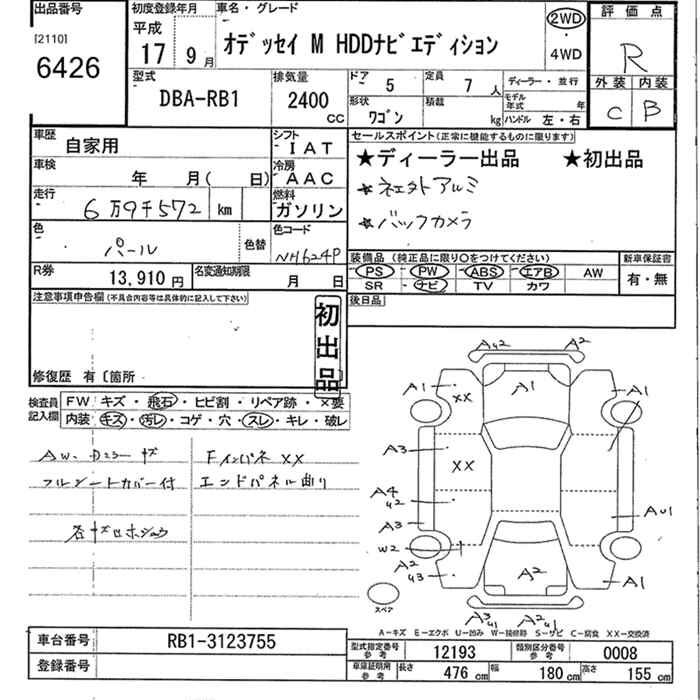 出品番号 初度登録年月 車名・グレード 評価点
[2110] 平成
6426 17 9月 オデッセイ M HDDナビエディション 2WD ・ 4WD R
外装 内装
C B
型式 排気量 ドア 5 定員 7人 ディーラー・並行
DBA-RB1 2400 CC 形状 ワゴン 積載 kg モデル年式 年
ハンドル 左・右
車歴 自家用 シフト IAT セールスポイント(正常に機能するものに限ります)
★ディーラー出品 ★初出品
車検 年 月( 日) 冷房 AAC
走行 6万9千572 km 燃料 ガソリン
★バックカメラ
色 パール 色替 色コード NH624P
装備品(純正品に限り〇をつけてください) 新車保証書
R券 13,910円 名変通知期限 月 日
PS ・ PW ・ ABS ・ エアB ・ AW 有・無
SR ・ ナビ ・ TV ・ カワ
注意事項申告欄(不具合内容等は具体的に記入して下さい) 後日品
初出品
修復歴 有〔箇所
検査員記入欄 FW キズ・飛石・ヒビ割・リペア跡・×要
内装・キズ・汚レ・コゲ・穴・スレ・キレ・破レ
フルシートカバー付
Fインパネ XX
エンドパネル曲り
A42 A2
A1 XX A1 A1
A3 XX
A4
42
A3 AU1
W2
A2
43 A2 A1
スペア
A-キズ E-エクボ U-凹み W-補修跡 S-サビ C-腐食 XX-交換済
車台番号 RB1-3123755
型式指定番号 参考 12193 類別区分番号 参考 0008
登録番号
車庫証明用 参考 長さ 476 cm 幅 180 cm 高さ 155 cm